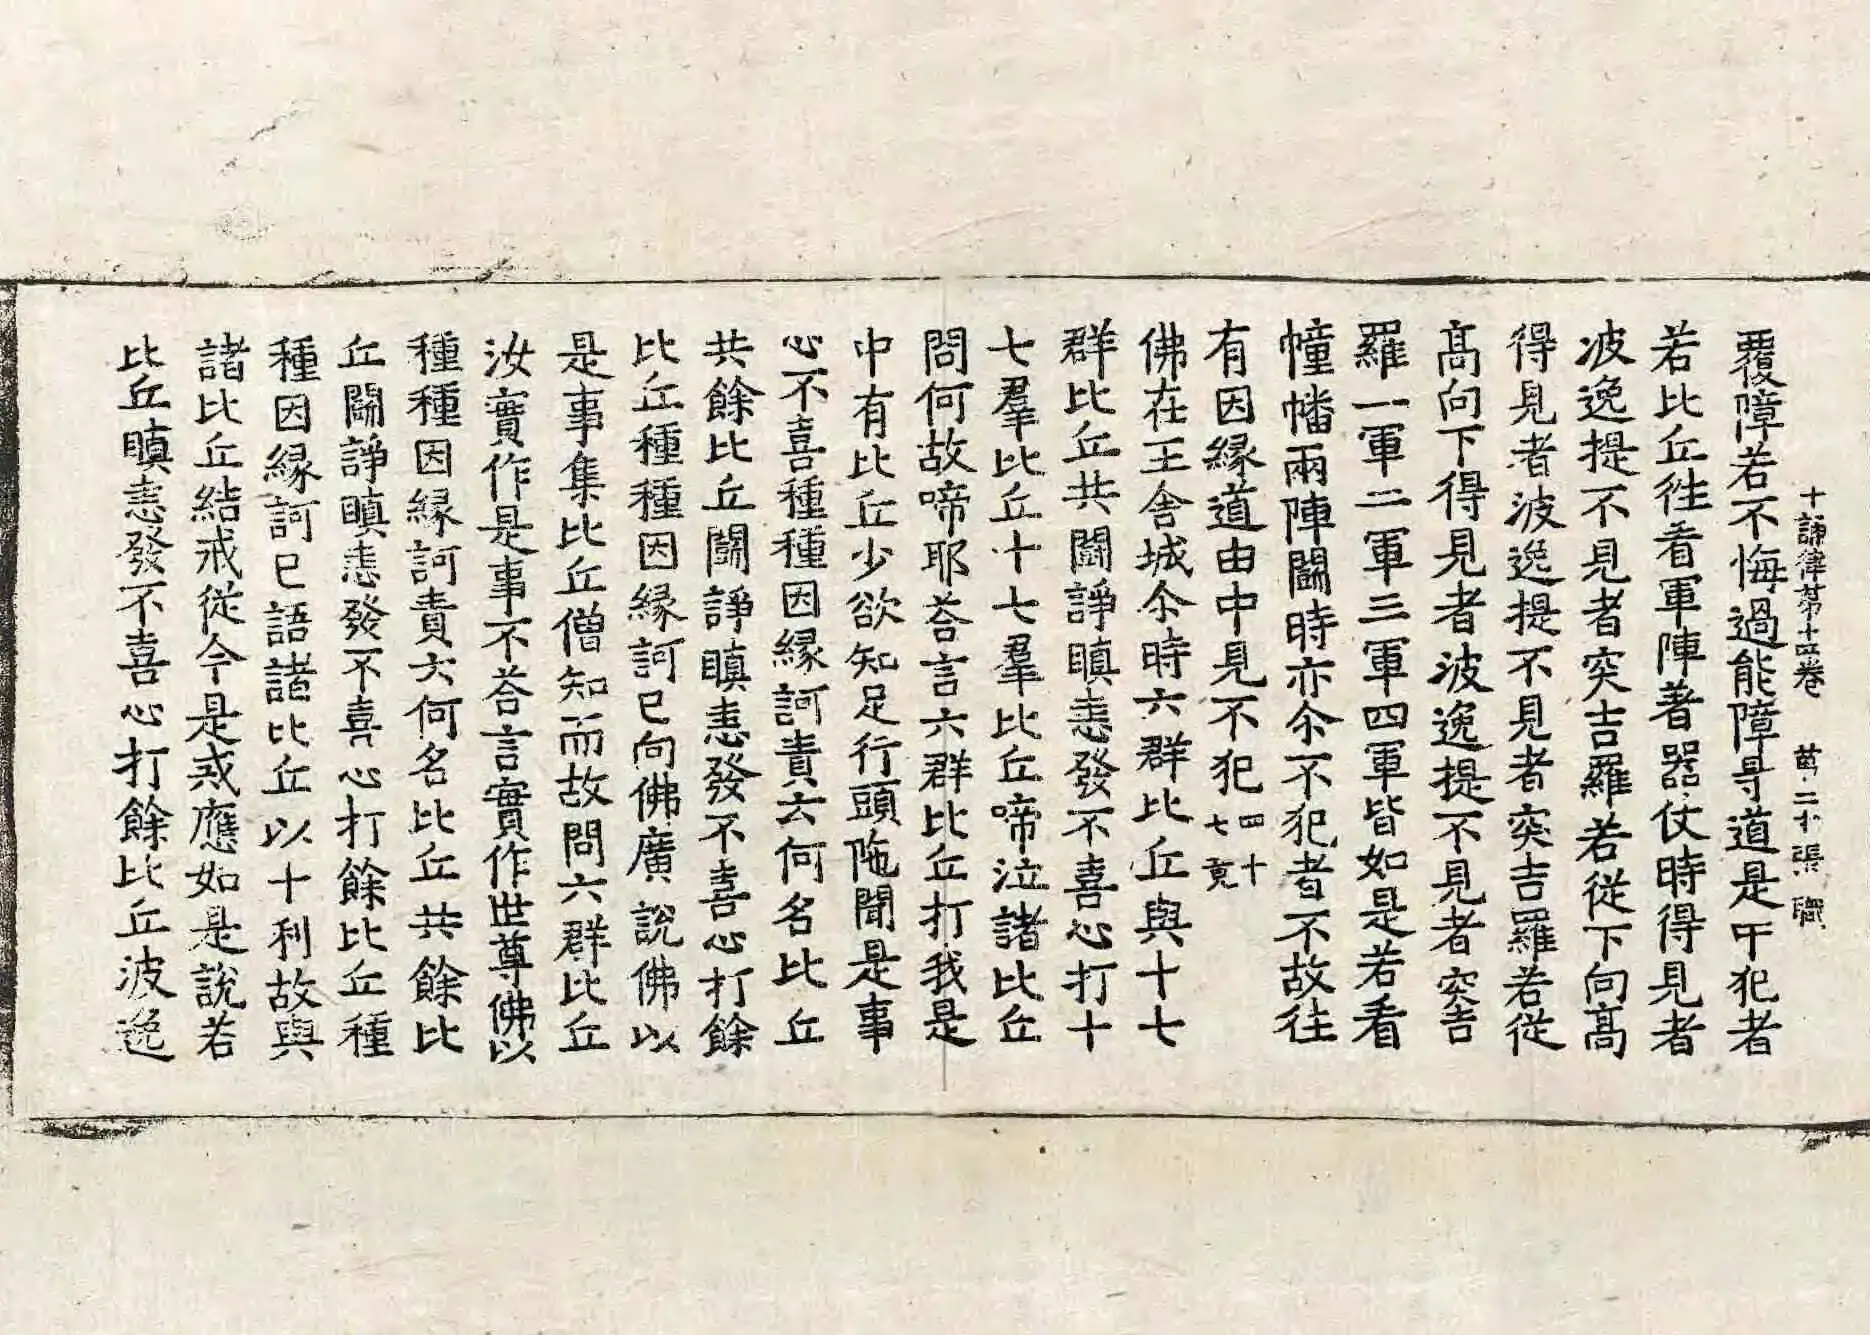 十誦律第十四卷 第二十張 職
覆障若不悔過能障㝵道是中犯者
若比丘往看軍陣著器仗時得見者
波逸提不見者突吉羅若從下向髙
得見者波逸提不見者突吉羅若從
髙向下得見者波逸提不見者突吉
羅一軍二軍三軍四軍皆如是若看
幢幡兩陣鬪時亦尒不犯者不故往
有因緣道由中見不犯 四十七竟
佛在王舍城尒時六群比丘與十七
群比丘共鬪諍瞋恚發不喜心打十
七羣比丘十七羣比丘啼泣諸比丘
問何故啼耶荅言六群比丘打我是
中有比丘少欲知足行頭陁聞是事
心不喜種種因緣訶責云何名比丘
共餘比丘鬪諍瞋恚發不喜心打餘
比丘種種因緣訶已向佛廣說佛以
是事集比丘僧知而故問六群比丘
汝實作是事不荅言實作世尊佛以
種種因緣訶責云何名比丘共餘比
丘鬪諍瞋恚發不喜心打餘比丘種
種因緣訶已語諸比丘以十利故與
諸比丘結戒從今是戒應如是說若
比丘瞋恚發不喜心打餘比丘波逸